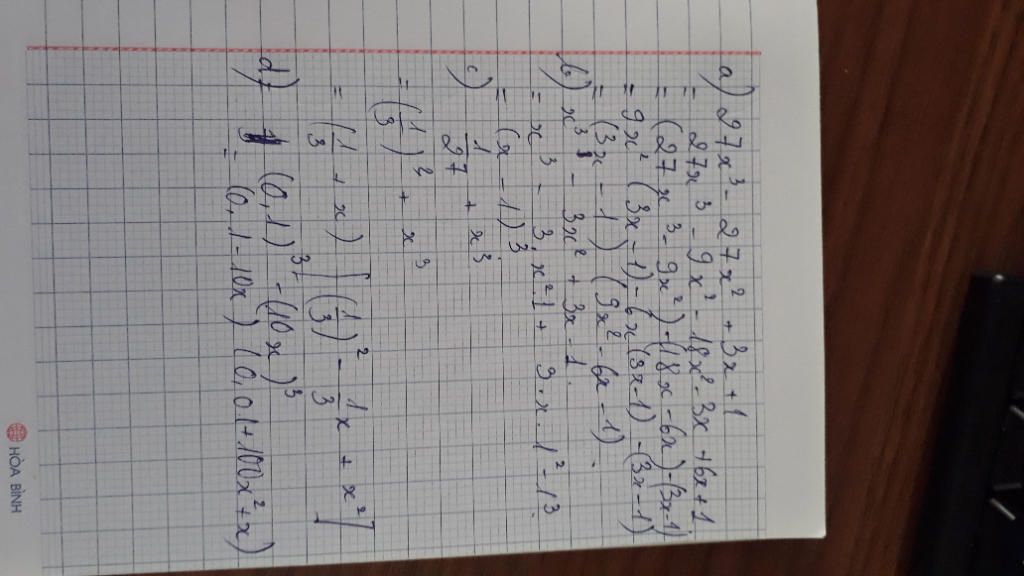 a) 27x³ - 27x² + 3x + 1
= 27x³ - 9x² - 18x² - 3x + 6x + 1
= (27x³ - 9x²) - (18x - 6x) - (3x - 1)
= 9x² (3x - 1) - 6x (3x - 1) - (3x - 1)
= (3x - 1) (9x² - 6x - 1).
b) x³ - 3x² + 3x - 1.
= x³ - 3.x².1 + 3.x.1² - 1³.
= (x - 1)³
c) 1/27 + x³
= (1/3)³ + x³
= (1/3 + x) [(1/3)² - 1/3x + x²]
d) (0,1)³ - (10x)³
= (0,1 - 10x) (0,01 + 100x² + x)
HÒA BÌNH